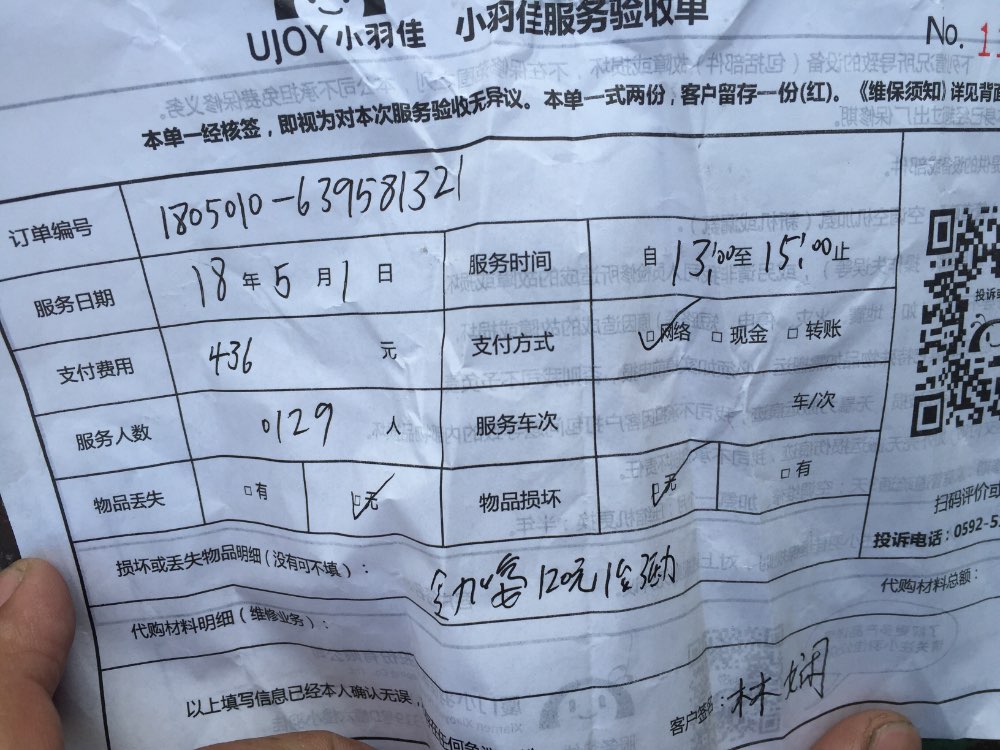 UJOY 小羽佳 小羽佳服务验收单
No. 1
本单一经核签，即视为对本次服务验收无异议。本单一式两份，客户留存一份(红)。《维保须知》详见背面
订单编号 1805010-639581321
服务日期 18 年 5 月 1 日 服务时间 自 13:00 至 15:00 止
支付费用 436 元 支付方式 □网络 □现金 □转账
服务人数 0129 人 服务车次 车/次
物品丢失 □有 □无 物品损坏 □无 □有
投诉
扫码评价或
投诉电话：0592-5
损坏或丢失物品明细(没有可不填)：
120元
代购材料明细(维修业务)：
代购材料总额：
以上填写信息已经本人确认无误，
客户签名：林娴